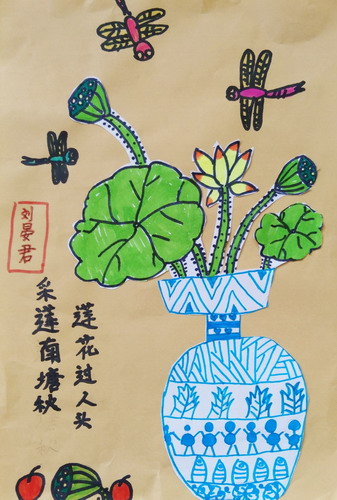 采莲南塘秋
莲花过人头
刘晏君